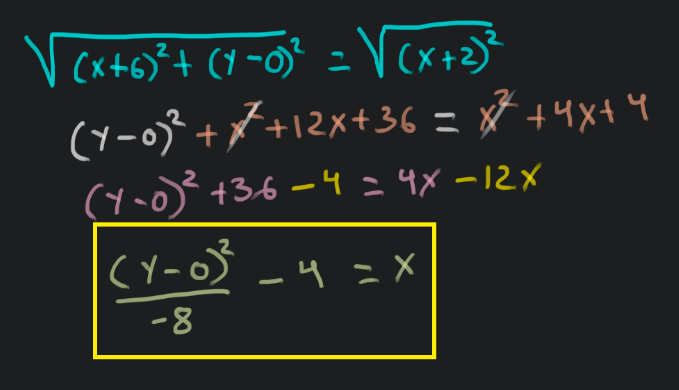 √(x+6)²+(y-0)² = √(x+2)²
(y-0)²+x²+12x+36 = x²+4x+4
(y-0)²+36-4 = 4x-12x
(y-0)²/-8 - 4 = x